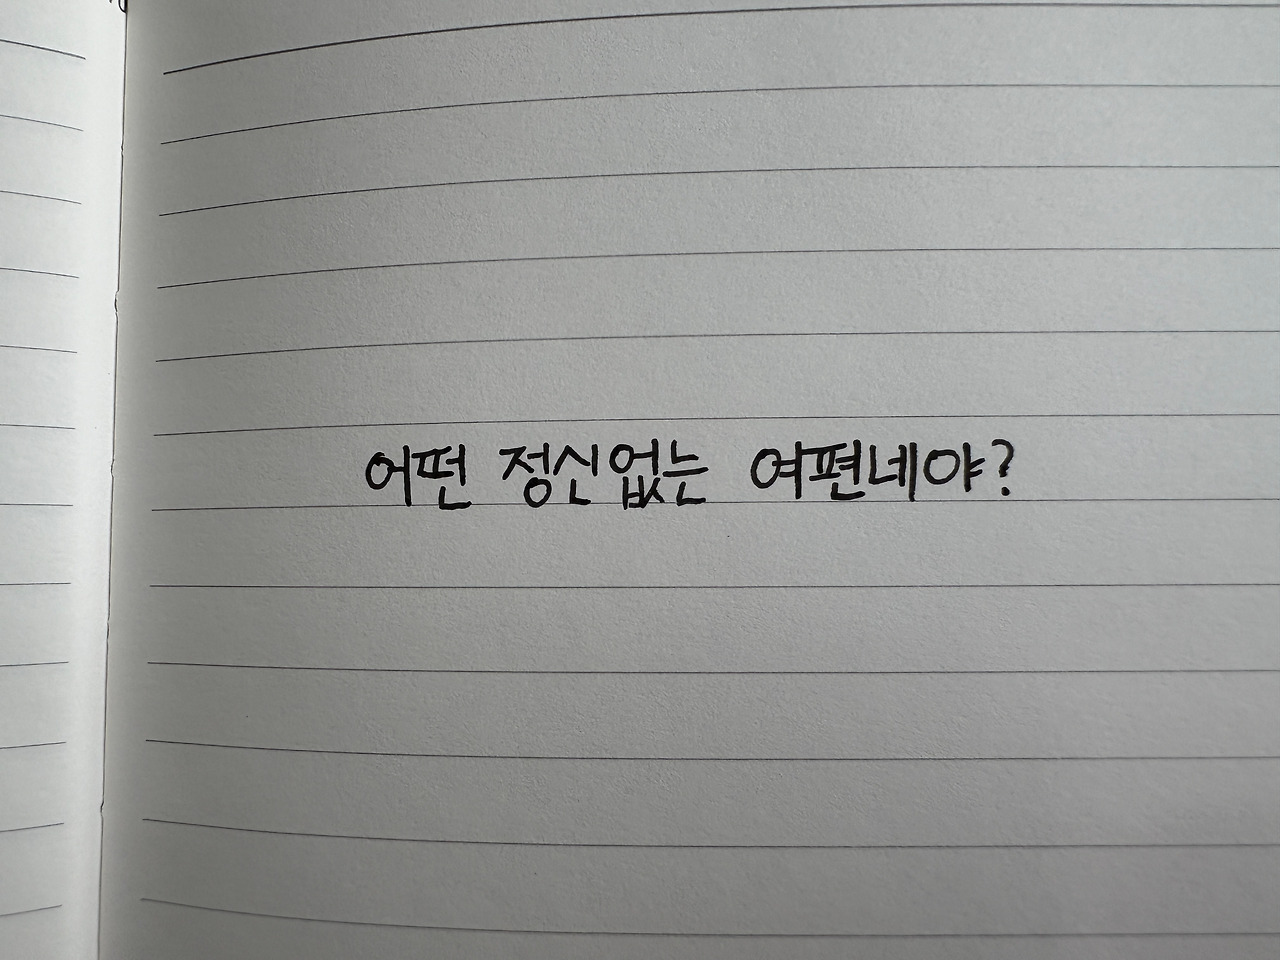 어떤 정신없는 여편네야?